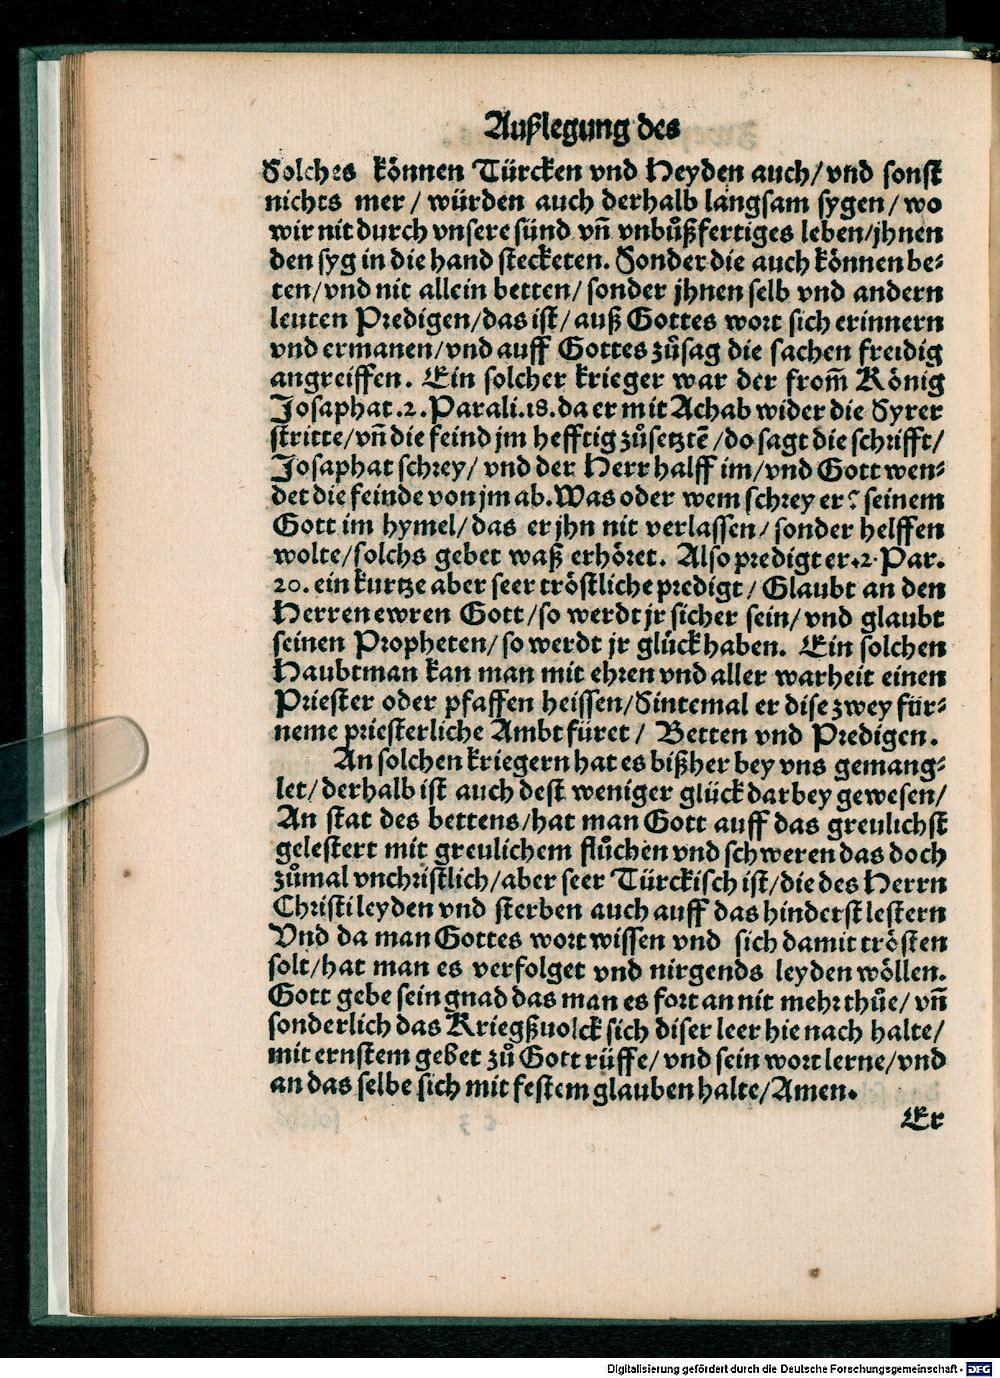 Außlegung des
Solches können Türcken vnd Heyden auch/ vnd sonst
nichts mer / würden auch derhalb langsam sygen/ wo
wir nit durch vnsere sünd vn̄ vnbůßfertiges leben/jhnen
den syg in die hand stecketen. Sonder die auch können be⸗
ten/vnd nit allein betten/ sonder jhnen selb vnd andern
leuten Predigen/das ist/ auß Gottes wort sich erinnern
vnd ermanen/vnd auff Gottes zůsag die sachen freidig
angreiffen. Ein solcher krieger war der from̄ König
Josaphat .2. Parali.18. da er mit Achab wider die Syrer
stritte/vn̄ die feind jm hefftig zůsetztē /do sagt die schrifft/
Josaphat schrey/ vnd der Herr halff im/vnd Gott wen⸗
det die feinde von jm ab. Was oder wem schrey er? seinem
Gott im hymel/das er jhn nit verlassen/ sonder helffen
wolte/solchs gebet waß erhöret. Also predigt er.2. Par.
20. ein kurtze aber seer tröstliche predigt / Glaubt an den
Herren ewren Gott/so werdt jr sicher sein/ vnd glaubt
seinen Propheten/ so werdt jr glück haben. Ein solchen
Haubtman kan man mit ehren vnd aller warheit einen
Priester oder pfaffen heissen/Sintemal er dise zwey für⸗
neme priesterliche Ambt füret / Betten vnd Predigen.
An solchen kriegern hat es bißher bey vns gemang⸗
let/derhalb ist auch dest weniger glück darbey gewesen/
An stat des bettens/hat man Gott auff das greulichst
gelestert mit greulichem flůchen vnd schweren das doch
zůmal vnchristlich/aber seer Türckisch ist/die des Herrn
Christi leyden vnd sterben auch auff das hinderst lestern
Vnd da man Gottes wort wissen vnd sich damit trösten
solt/hat man es verfolget vnd nirgends leyden wöllen.
Gott gebe sein gnad das man es fort an nit mehr thůe/ vn̄
sonderlich das Kriegßuolck sich diser leer hie nach halte/
mit ernstem gebet zů Gott rüffe/ vnd sein wort lerne/vnd
an das selbe sich mit festem glauben halte/Amen.
Er
Digitalisierung gefördert durch die Deutsche Forschungsgemeinschaft - DFG